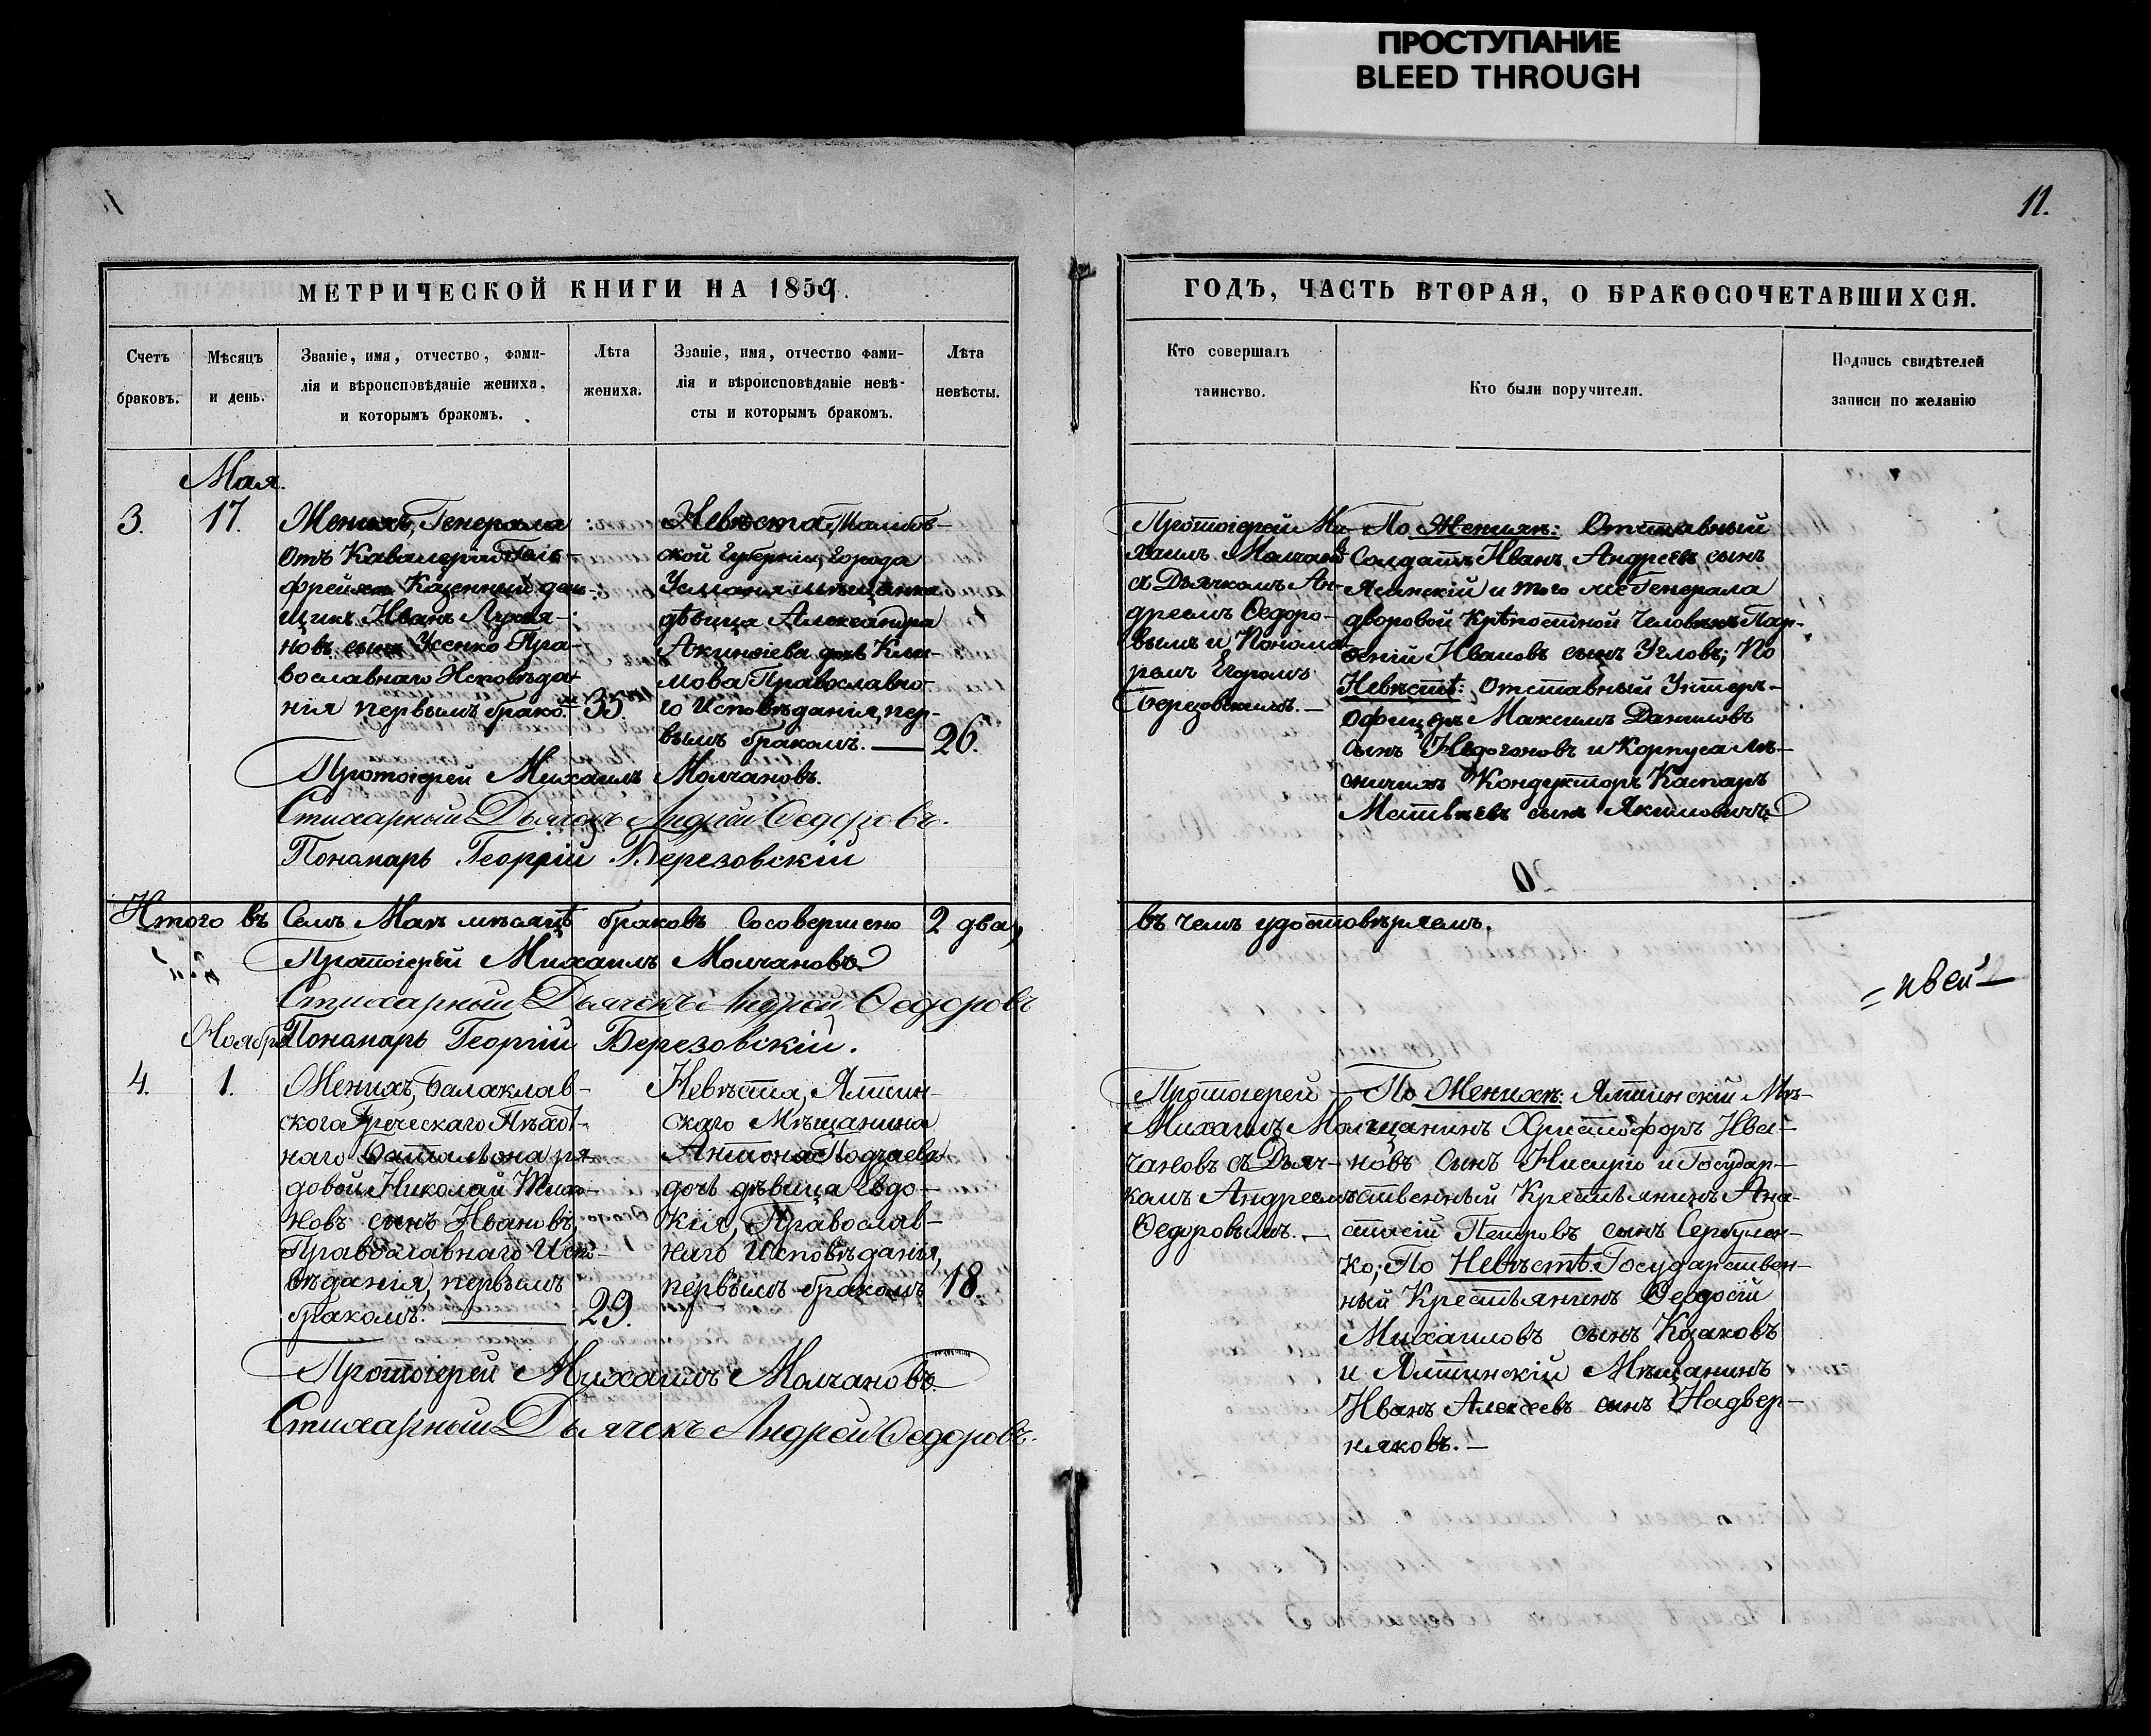 ПРОСТУПАНИЕ
BLEED THROUGH
11.
МЕТРИЧЕСКОЙ КНИГИ НА 1859.
Счетъ браковъ.
Мѣсяцъ и день.
Званіе, имя, отчество, фами-
лія и вѣроисповѣданіе жениха,
и которымъ бракомъ.
Лѣта жениха.
Званіе, имя, отчество фами-
лія и вѣроисповѣданіе невѣ-
сты и которымъ бракомъ.
Лѣта невѣсты.
Мая.
3.
17.
Женихъ, Генерала
отъ Кавалеріи
Казенный ден-
щикъ Иванъ Лукья-
новъ сынъ Усенко Пра-
вославнаго Исповѣда-
нія первымъ брако.
35.
Невѣста, Тамбов-
ской Губерніи, города
Усманя мѣщанка
дѣвица Александра
Акинѳіева дочь Кли-
мова Православна-
го Исповѣданія, пер-
вымъ бракомъ. —
26.
Протоіерей Михаилъ Молчановъ.
Стихарный Дьячекъ Андрей Ѳедоровъ.
Понамарь Георгій Березовскій
Итого въ Семъ Маѣ мѣсяцѣ браковъ Сосовершено 2 два,
Протоіерей Михаилъ Молчановъ
Стихарный Дьячекъ Андрей Ѳедоровъ
Понамарь Георгій Березовскій.
Ноябр
4.
1.
Женихъ, Балаклав-
скаго Греческаго Пѣхот-
наго баталіона ря-
довой Николай
новъ сынъ Ивановъ,
Православнаго Испо-
вѣданія, первымъ
бракомъ. —
29.
Невѣста, Ялтин-
скаго Мѣщанина
Антона Подчаева
дочь дѣвица Евдо-
кія, Православ-
наго Исповѣданія,
первымъ бракомъ
18.
Протоіерей Михаилъ Молчановъ
Стихарный Дьячекъ Андрей Ѳедоровъ.
ГОДЪ, ЧАСТЬ ВТОРАЯ, О БРАКОСОЧЕТАВШИХСЯ.
Кто совершалъ
таинство.
Кто были поручители.
Подпись свидѣтелей
записи по желанію
Протоіерей Ми-
хаилъ Молчановъ
съ Дьячкомъ Ан-
дреемъ Ѳедоро-
вымъ и Понома-
ремъ Егоромъ
Березовскимъ. —
По Женихѣ: Отставный
Солдатъ Иванъ Андреевъ сынъ
Ясинскій и того же Генерала
дворовой Крѣпостной Человѣкъ Пар-
ѳеній Ивановъ сынъ Угловъ; По
Невѣстѣ: Отставный Унтеръ-
офицеръ Максимъ Даниловъ
сынъ Недогоновъ и Корпуса лѣ-
сничихъ Кондукторъ Каспаръ
Матвѣевъ сынъ Якимовичъ
въ чемъ удостовѣряемъ.
Протоіерей
Михаилъ Мол-
чановъ съ Дьяч-
комъ Андреемъ
Ѳедоровымъ. —
По Женихѣ: Ялтинскій Мѣ-
щанинъ Христофоръ Ива-
новъ сынъ и Государ-
ственный Крестьянинъ Ана-
стасій Петровъ сынъ Сербулен-
ко; По Невѣстѣ: Государствен-
ный Крестьянинъ Ѳеодосій
Михаиловъ сынъ Казаковъ
и Ялтинскій Мѣщанинъ
Иванъ Алексеевъ сынъ Надвер-
няковъ. —